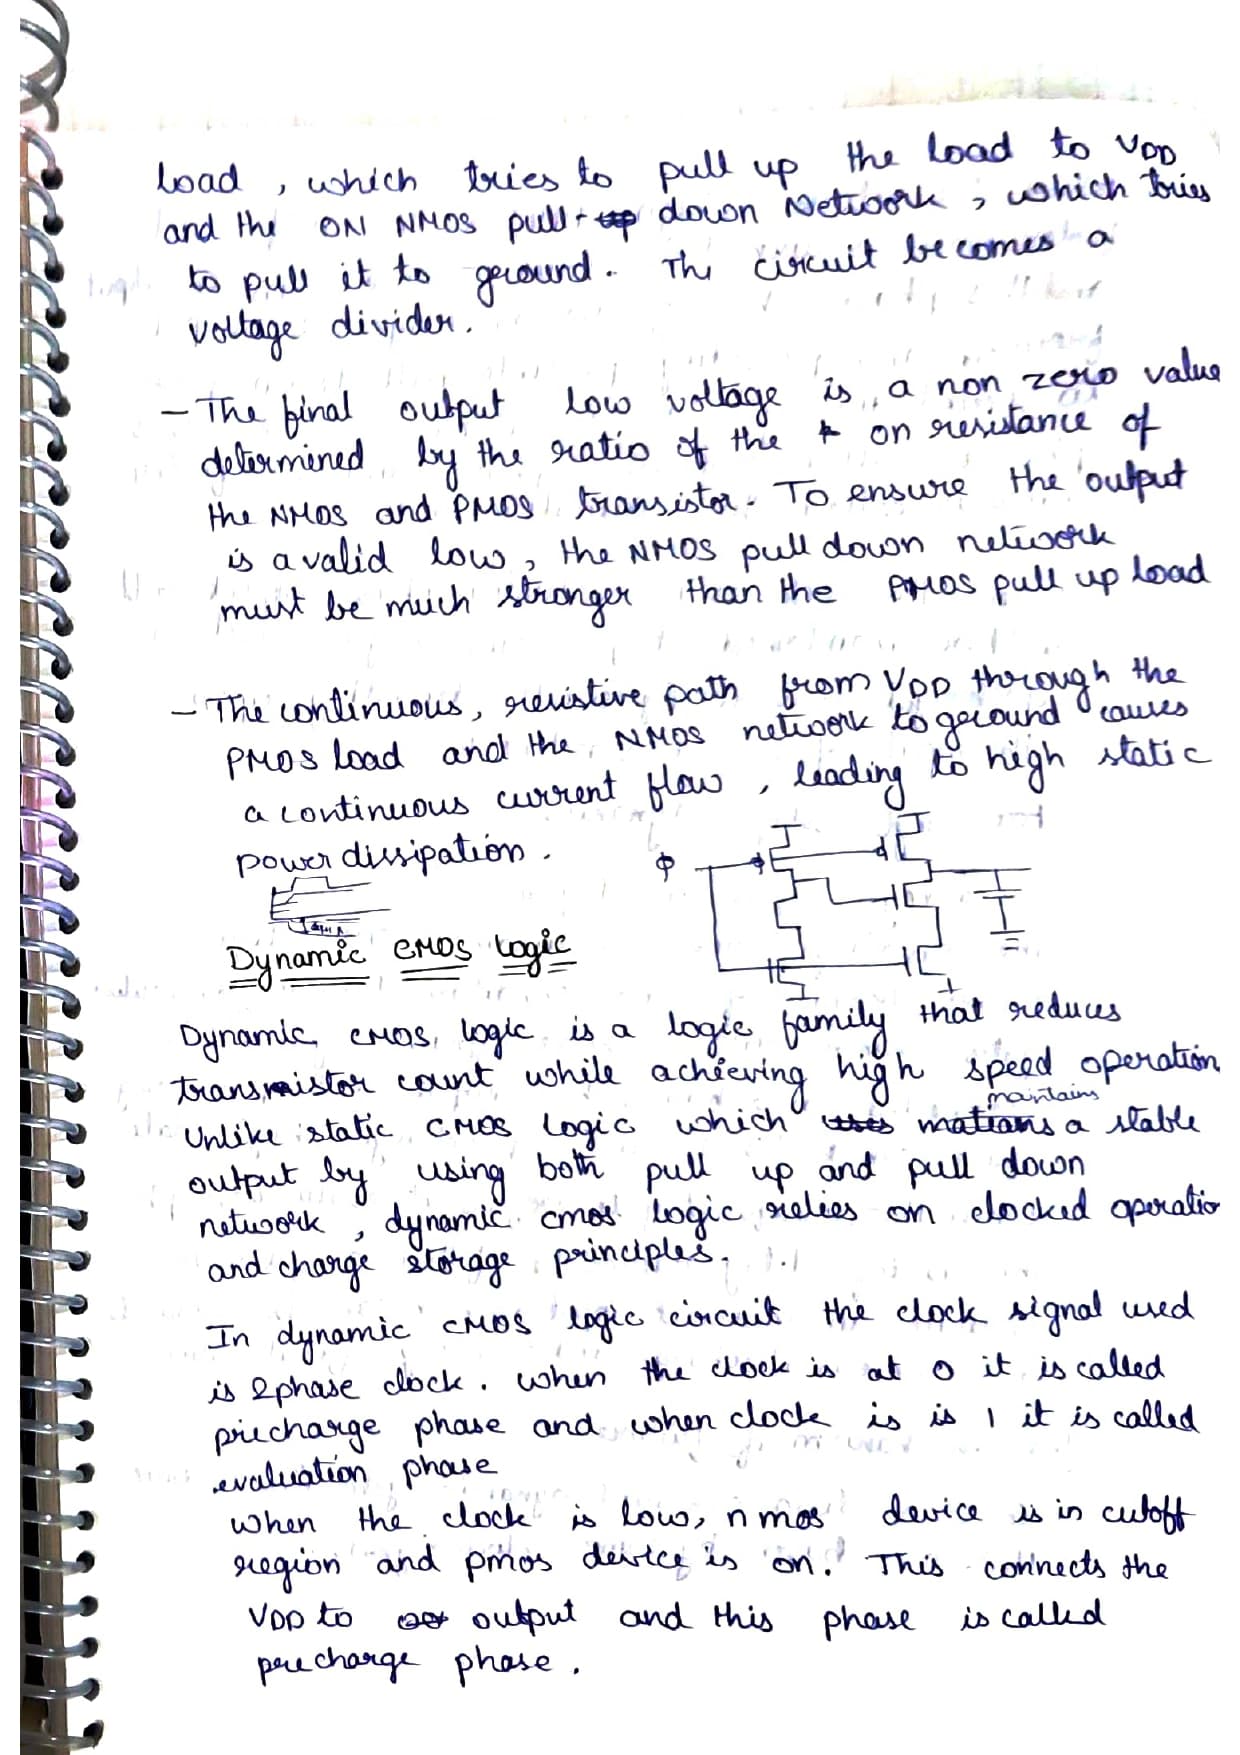 load, which tries to pull up the load to VDD
and the ON NMOS pull-up down Network, which tries
to pull it to ground. The circuit becomes a
voltage divider.
- The final output low voltage is a non zero value
determined by the ratio of the on resistance of
the NMOS and PMOS transistor. To ensure the output
is a valid low, the NMOS pull down network
must be much stronger than the PMOS pull up load
- The continuous, resistive path from VDD through the
PMOS load and the NMOS network to ground causes
a continuous current flow, leading to high static
power dissipation.
ϕ
Dynamic CMOS Logic
Dynamic CMOS logic is a logic family that reduces
transmistor count while achieving high speed operation.
maintains
Unlike static CMOS logic which uses matians a stable
output by using both pull up and pull down
network, dynamic cmos logic relies on clocked operatio
and charge storage principles.
In dynamic CMOS logic circuit the clock signal used
is 2phase clock. when the clock is at 0 it is called
precharge phase and when clock is is 1 it is called
evaluation phase
when the clock is low, nmos device is in cutoff
region and pmos device is on. This connects the
VDD to output and this phase is called
precharge phase.